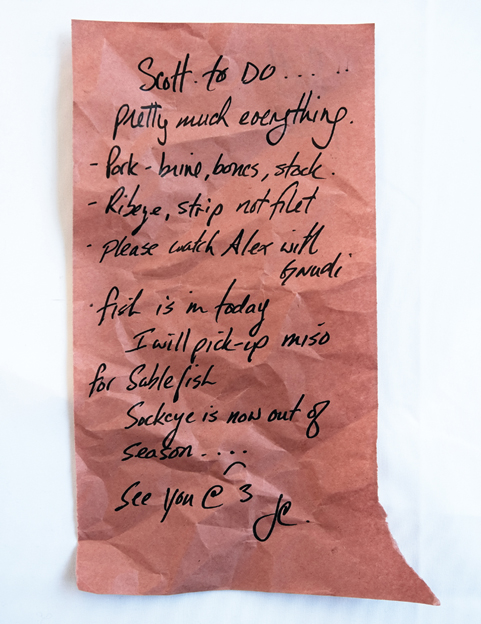 Scott. to DO....
pretty much everything.
- Pork - brine, bones, stock.
- Ribeye, strip not filet
- please watch Alex with
Gnudi
· fish is in today
I will pick-up miso
for Sablefish
Sockeye is now out of
season....
See you @ 3
JC.